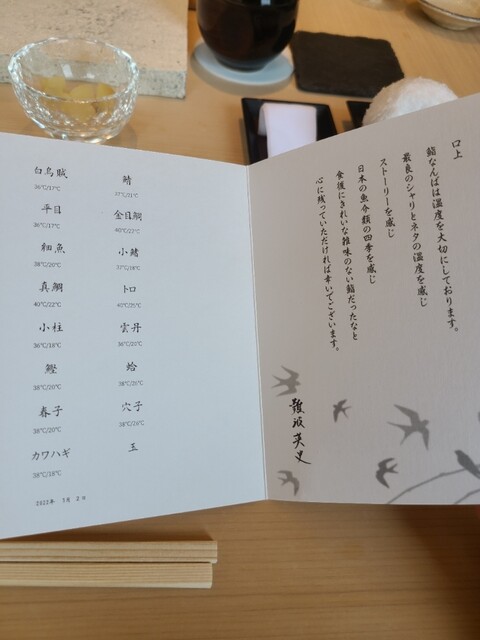 白烏賊
36℃/17℃
平目
36℃/17℃
細魚
38℃/20℃
真鯛
40℃/22℃
小柱
36℃/18℃
鰹
38℃/20℃
春子
38℃/20℃
カワハギ
38℃/18℃
鯖
37℃/21℃
金目鯛
40℃/27℃
小鰭
37℃/18℃
トロ
40℃/25℃
雲丹
36℃/20℃
蛤
38℃/26℃
穴子
38℃/20℃
玉
口上
鮨なんばは温度を大切にしております。
最良のシャリとネタの温度を感じ
ストーリーを感じ
日本の魚介類の四季を感じ
食後にきれいな雑味のない鮨だったなと
心に残っていただければ幸いでございます。
難波英史